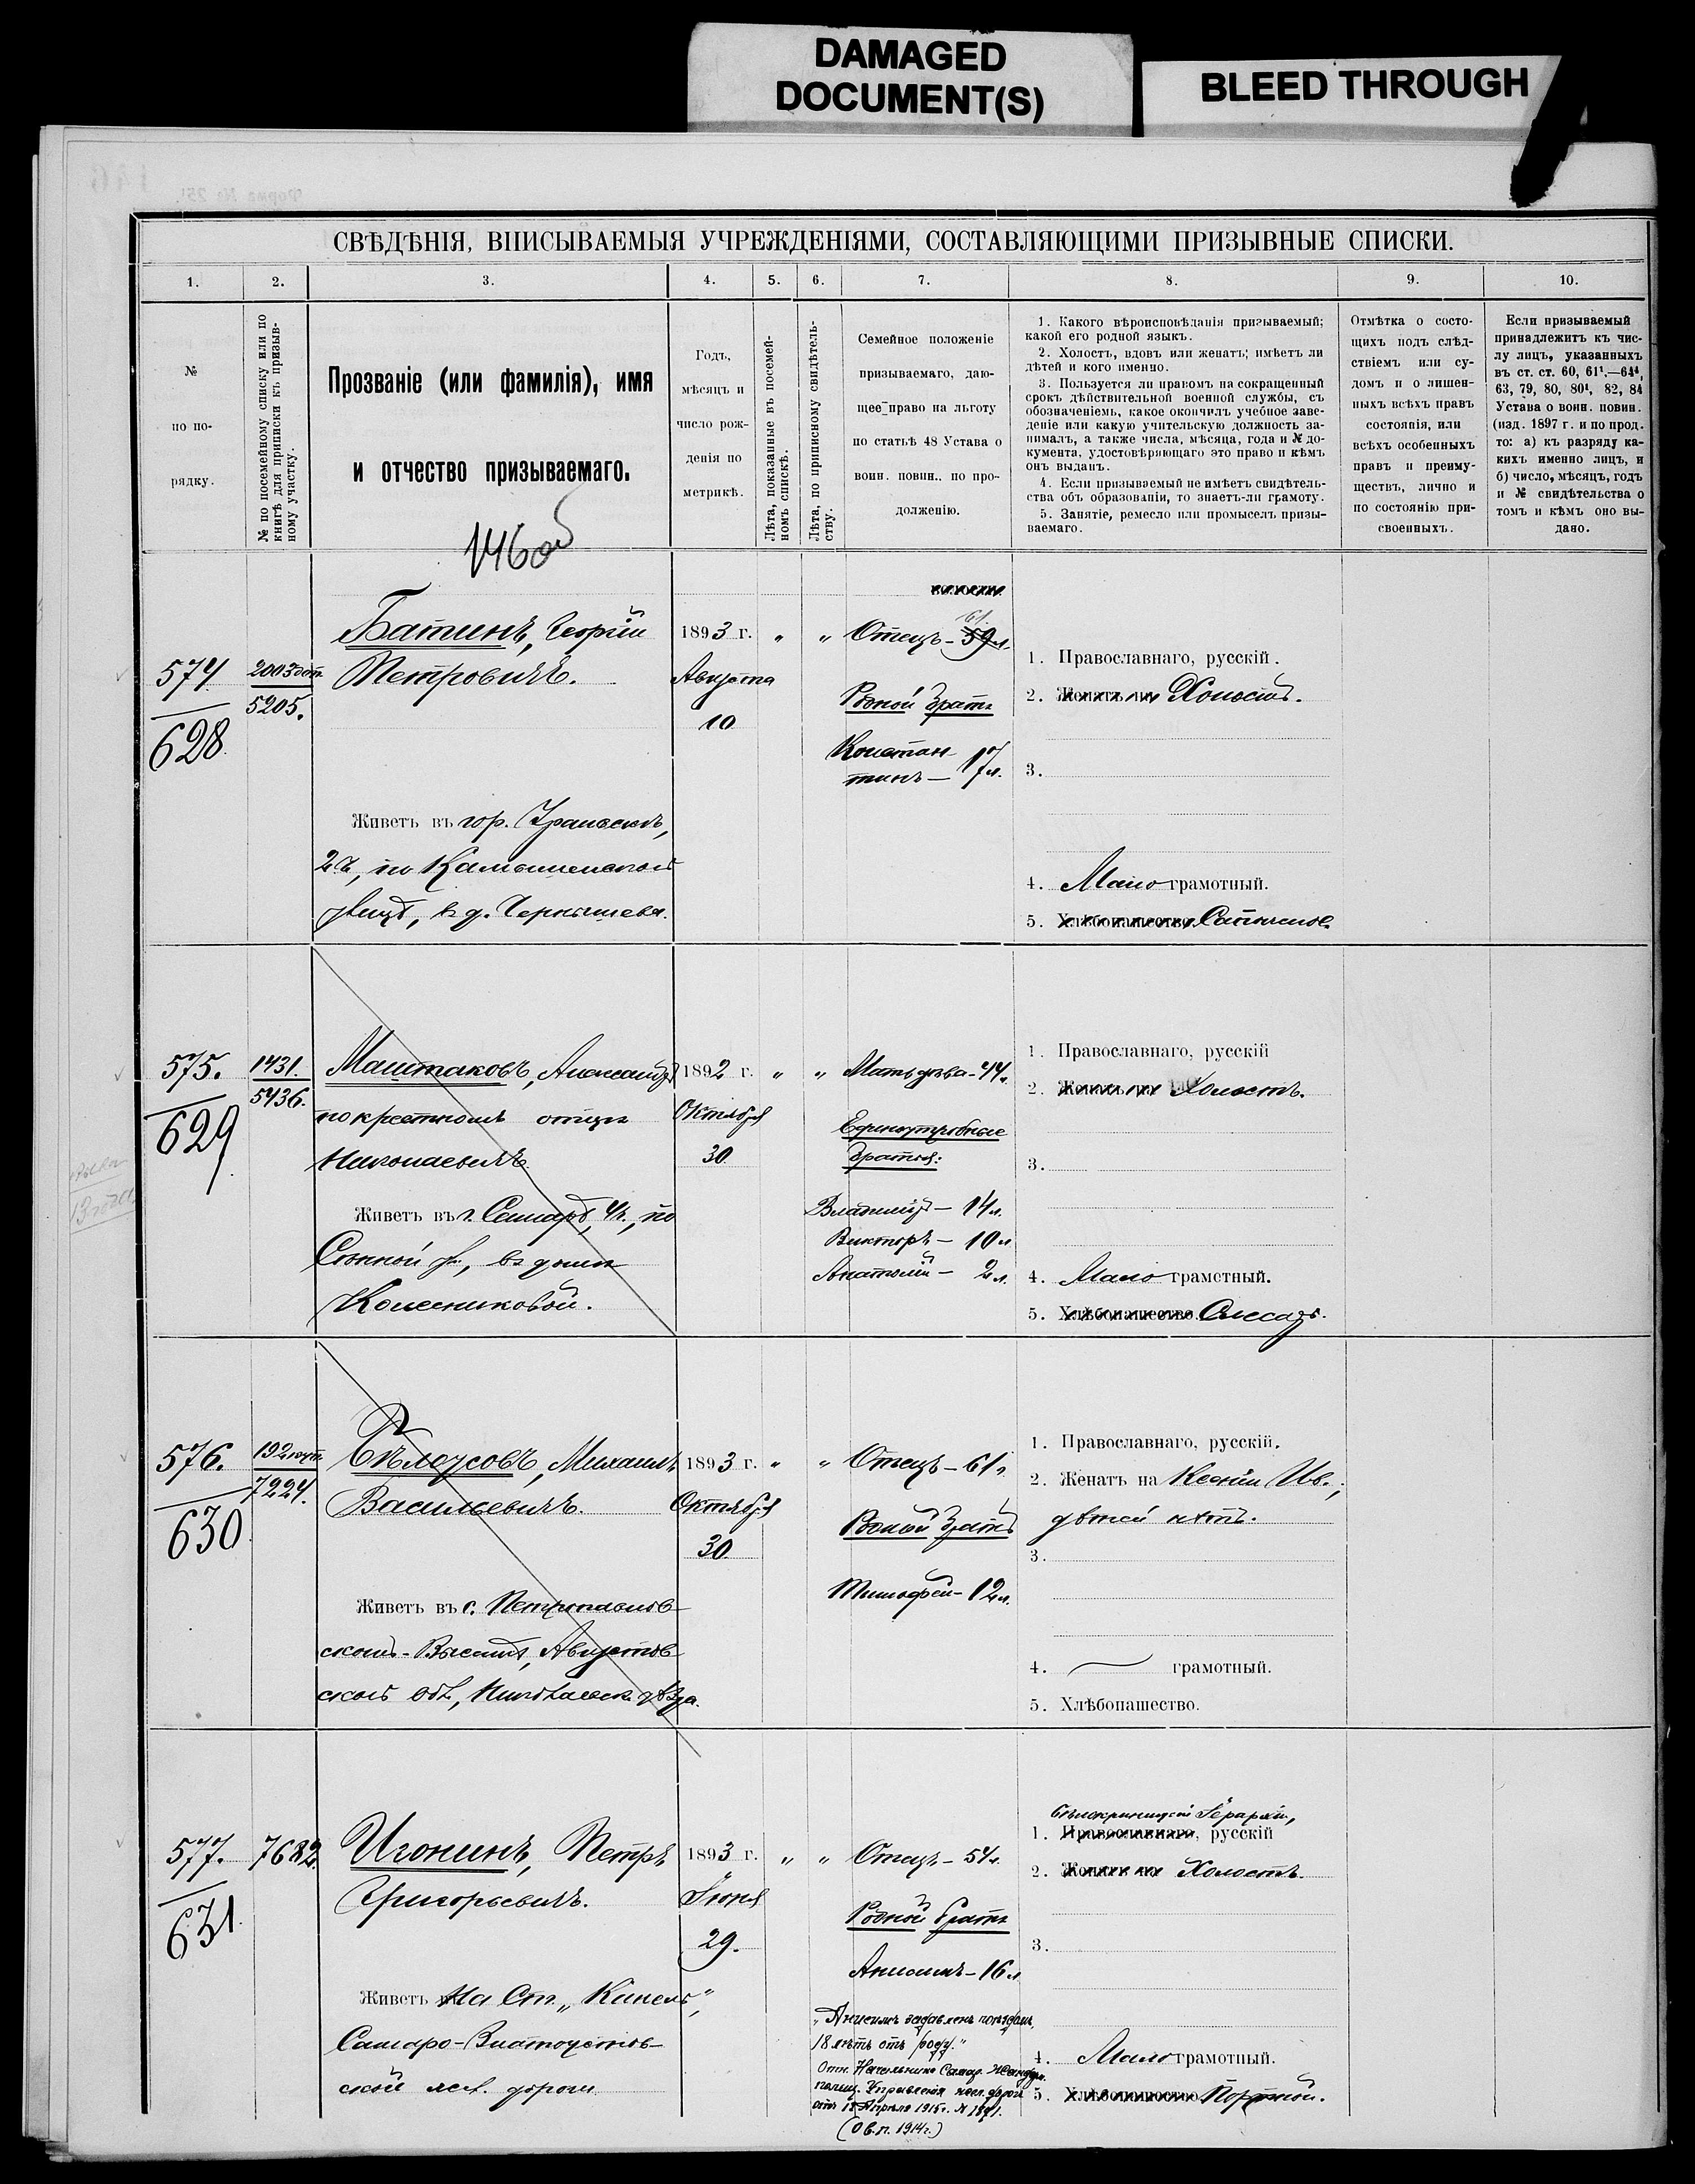 DAMAGED
DOCUMENT(S)
BLEED THROUGH
СВѢДѢНІЯ, ВПИСЫВАЕМЫЯ УЧРЕЖДЕНІЯМИ, СОСТАВЛЯЮЩИМИ ПРИЗЫВНЫЕ СПИСКИ.
1. 2. 3. 4. 5. 6. 7. 8. 9. 10.
№
по по-
рядку.
№ по посемейному списку или по
книгѣ для приписки къ призыв-
ному участку.
Прозваніе (или фамилія), имя
и отчество призываемаго.
146об
Годъ,
мѣсяцъ и
число рож-
денія по
метрикѣ.
Лѣта, показанные въ посемей-
номъ спискѣ.
Лѣта, по приписному свидѣтель-
ству.
Семейное положеніе
призываемаго, даю-
щее право на льготу
по статьѣ 48 Устава о
воин. повин.. по про-
долженію.
1. Какого вѣроисповѣданія призываемый;
какой его родной языкъ.
2. Холостъ, вдовъ или женатъ; имѣетъ ли
дѣтей и кого именно.
3. Пользуется ли правомъ на сокращенный
срокъ дѣйствительной военной службы, съ
обозначеніемъ, какое окончилъ учебное заве-
деніе или какую учительскую должность за-
нималъ, а также числа, мѣсяца, года и № до-
кумента, удостовѣряющаго это право и кѣмъ
онъ выданъ.
4. Если призываемый не имѣетъ свидѣтель-
ства объ образованіи, то знаетъ-ли грамоту.
5. Занятіе, ремесло или промыселъ призы-
ваемаго.
Отмѣтка о состо-
щихъ подъ слѣд-
ствіемъ или су-
домъ и о лишен-
ныхъ всѣхъ правъ
состоянія, или
всѣхъ особенныхъ
правъ и преиму-
ществъ, лично и
по состоянію при-
своенныхъ.
Если призываемый
принадлежитъ къ чис-
лу лицъ, указанныхъ
въ ст. ст. 60, 61¹.—64⁴,
63, 79, 80, 80¹, 82, 84
Устава о воин. повин.
(изд. 1897 г. и по прод.
то: а) къ разряду ка-
кихъ именно лицъ, и
б) число, мѣсяцъ, годъ
и № свидѣтельства о
томъ и кѣмъ оно вы-
дано.
574
628
5205.
Батинъ, Георгій
Петровичъ.
1893 г. „ „
Августа
10
61.
Отецъ - 59 л.
Родной братъ
Констан-
тинъ — 17 л.
1. Православнаго, русскій.
2. Женатъ на Холостъ.
3.
4. Мало грамотный.
5. Хлѣбопашество.
Живетъ въ гор. Уральскѣ,
2 ч., по
въ д. Чернышева.
575.
629
1431.
5436.
Маштаковъ, Александръ
по крестному отцу
Николаевичъ.
1892 г. „ „
Октября
30
Мать дѣва - 44 л.
Единоутробные
братья:
Владиміръ — 14 л.
Викторъ — 10 л.
Анатолій — 2 л.
1. Православнаго, русскій
2. Женатъ на Холостъ.
3.
4. Мало грамотный.
5. Хлѣбопашество. Слесарь.
Живетъ въ г. Самарѣ, 4 ч., по
Сѣнной ул., въ домѣ
Колесниковой.
576.
630
7224.
Бѣлоусовъ, Михаилъ
Васильевичъ.
1893 г. „ „
Октября
30
Отецъ - 61 л.
Родной братъ
Тимофей - 12 л.
1. Православнаго, русскій.
2. Женатъ на Ксеніи Ив.,
дѣтей нѣтъ.
3.
4. — грамотный.
5. Хлѣбопашество.
Живетъ въ с. Петропавлов-
Августов-
ской вол., Николаевск. уѣзда.
577.
631
7682.
Игонинъ, Петръ
Григорьевичъ.
1893 г. „ „
Іюня
29.
Отецъ - 54 л.
Родной братъ
Анисимъ - 16 л.
„Анисимъ задавленъ поѣздомъ,
18 лѣтъ отъ роду."
Отн. Начальника Самар. Жандарм.
полиц. Управленія жел. дорогъ
отъ 18 Апрѣля 1915 г.
(О в. п. 1914 г.)
Бѣлокриницкой Іерархіи,
1. Православнаго, русскій
2. Женатъ на Холостъ.
3.
4. Мало грамотный.
5. Хлѣбопашество Портной.
Живетъ на Ст. „Кинель",
Самаро-Златоустов-
ской жел. дороги